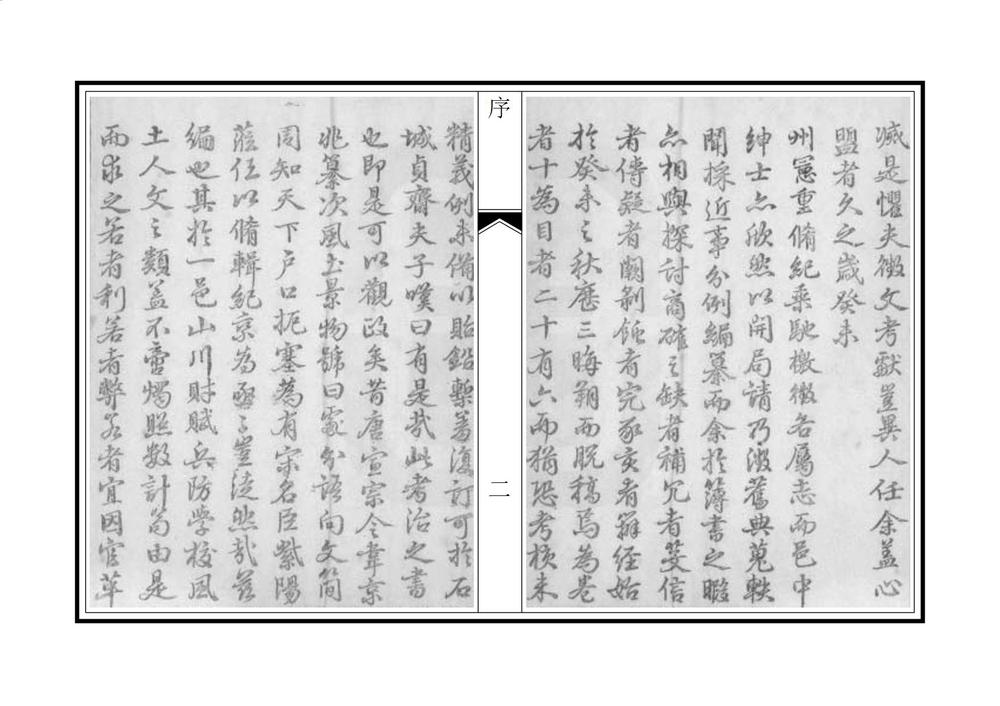 滅是懼夫徵文考獻豈異人任余蓋心
盟者久之歲癸未
州憲重脩紀乘馳檄徵各屬志而邑中
紳士亦欣然以開局請乃溯舊典蒐軼
聞採近事分例編纂而余於簿書之暇
亦相與探討商確之缺者補冗者芟信
者傳疑者闕剝蝕者完豕亥者辭經始
於癸未之秋歷三晦朔而脫稿焉為卷
者十為目者二十有六而猶恐考核未
序
二
精義例未備以貽鉛槧羞復訂可於石
城貞齋夫子嘆曰有是哉此考治之書
也即是可以觀政矣昔唐宣宗令韋京
兆纂次風土景物號曰處分語向文簡
周知天下戶口扼塞蔫有宋名臣紫陽
蒞任以脩輯紀乘為亟亟豈徒然哉茲
編也其於一邑山川財賦兵防學校風
土人文之類蓋不啻燭照數計苟由是
而求之若者利若者弊若者宜因宜革